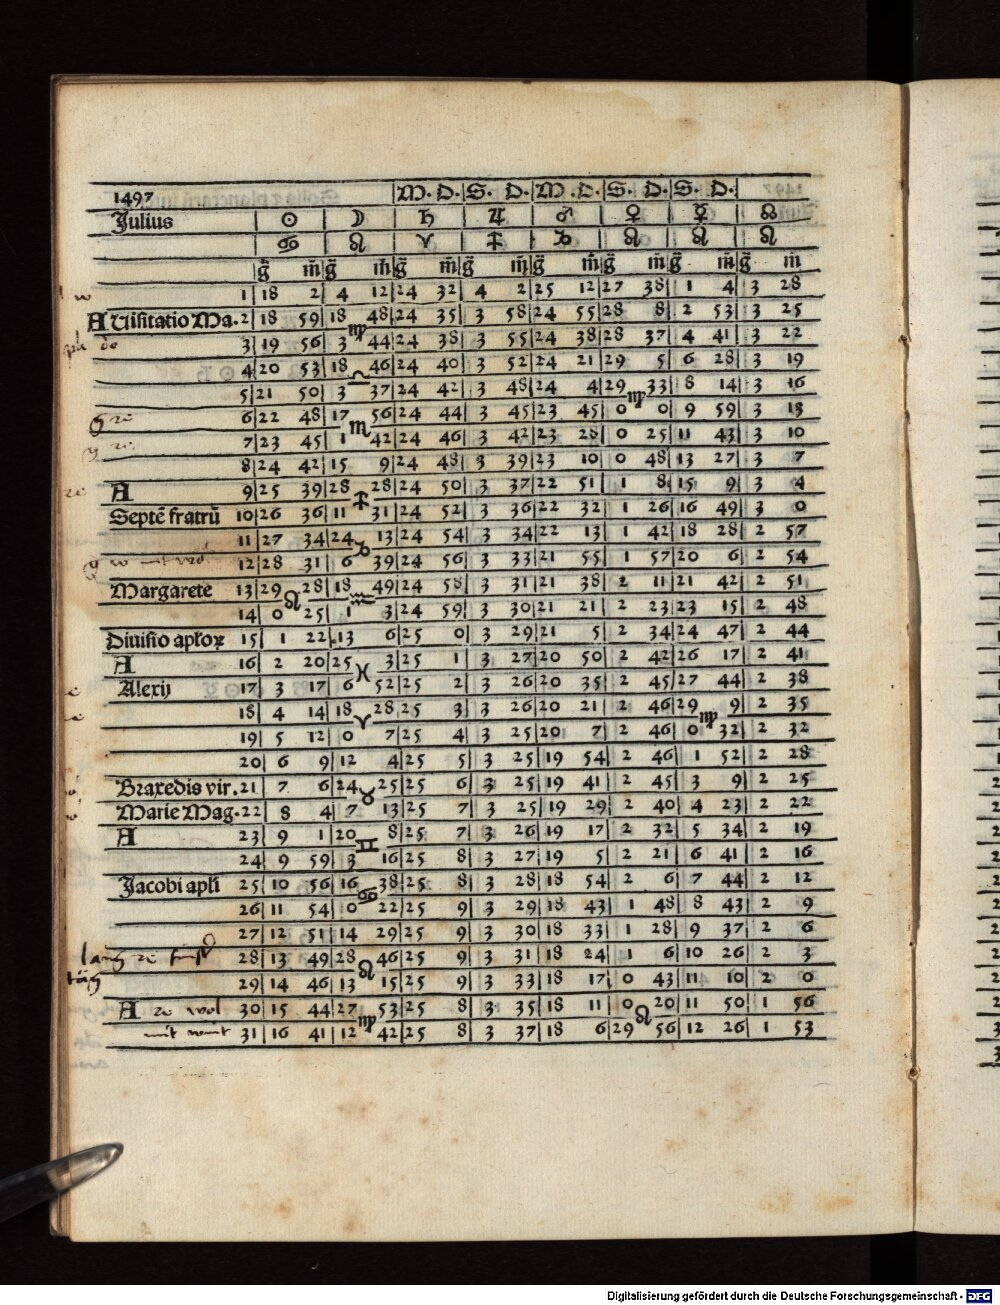 1497 M. D. S. D. M. D. S. D. S. D.
Julius ☉ ☽ ♄ ♃ ♂ ♀ ☿ ☊
♋ ♌ ♈ ♐ ♑ ♌ ♌ ♌
g̃ m̃ g̃ m̃ g̃ m̃ g̃ m̃ g̃ m̃ g̃ m̃ g̃ m̃ g̃ m̃
1 18 2 4 12 24 32 4 2 25 12 27 38 1 4 3 28
A Uisitatio Ma. 2 18 59 18 48 24 35 3 58 24 55 28 8 2 53 3 25
3 19 56 3 ♍ 44 24 38 3 55 24 38 28 37 4 41 3 22
4 20 53 18 46 24 40 3 52 24 21 29 5 6 28 3 19
5 21 50 3 ♎ 37 24 42 3 48 24 4 29 33 8 14 3 16
6 22 48 17 56 24 44 3 45 23 45 0 ♍ 0 9 59 3 13
7 23 45 1 ♏ 42 24 46 3 42 23 28 0 25 11 43 3 10
8 24 42 15 9 24 48 3 39 23 10 0 48 13 27 3 7
A 9 25 39 28 28 24 50 3 37 22 51 1 8 15 9 3 4
Septē fratrū 10 26 36 11 ♐ 31 24 52 3 36 22 32 1 26 16 49 3 0
11 27 34 24 13 24 54 3 34 22 13 1 42 18 28 2 57
12 28 31 6 ♑ 39 24 56 3 33 21 55 1 57 20 6 2 54
Margarete 13 29 28 18 49 24 58 3 31 21 38 2 11 21 42 2 51
14 0 ♌ 25 1 ♒ 3 24 59 3 30 21 21 2 23 23 15 2 48
Diuisio apłoꝝ 15 1 22 13 6 25 0 3 29 21 5 2 34 24 47 2 44
A 16 2 20 25 3 25 1 3 27 20 50 2 42 26 17 2 41
Alexij 17 3 17 6 ♓ 52 25 2 3 26 20 35 2 45 27 44 2 38
18 4 14 18 28 25 3 3 26 20 21 2 46 29 9 2 35
19 5 12 0 ♈ 7 25 4 3 25 20 7 2 46 0 ♍ 32 2 32
20 6 9 12 4 25 5 3 25 19 54 2 46 1 52 2 28
Braxedis vir. 21 7 6 24 25 25 6 3 25 19 41 2 45 3 9 2 25
Marie Mag. 22 8 4 7 ♉ 13 25 7 3 25 19 29 2 40 4 23 2 22
A 23 9 1 20 8 25 7 3 26 19 17 2 32 5 34 2 19
24 9 59 3 ♊ 16 25 8 3 27 19 5 2 21 6 41 2 16
Jacobi apłi 25 10 56 16 38 25 8 3 28 18 54 2 6 7 44 2 12
26 11 54 0 ♋ 22 25 9 3 29 18 43 1 48 8 43 2 9
27 12 51 14 29 25 9 3 30 18 33 1 28 9 37 2 6
28 13 49 28 46 25 9 3 31 18 24 1 6 10 26 2 3
29 14 46 13 ♌ 15 25 9 3 33 18 17 0 43 11 10 2 0
A 30 15 44 27 53 25 8 3 35 18 11 0 20 11 50 1 56
31 16 41 12 ♍ 42 25 8 3 37 18 6 29 ♌ 56 12 26 1 53
Digitalisierung gefördert durch die Deutsche Forschungsgemeinschaft - DFG